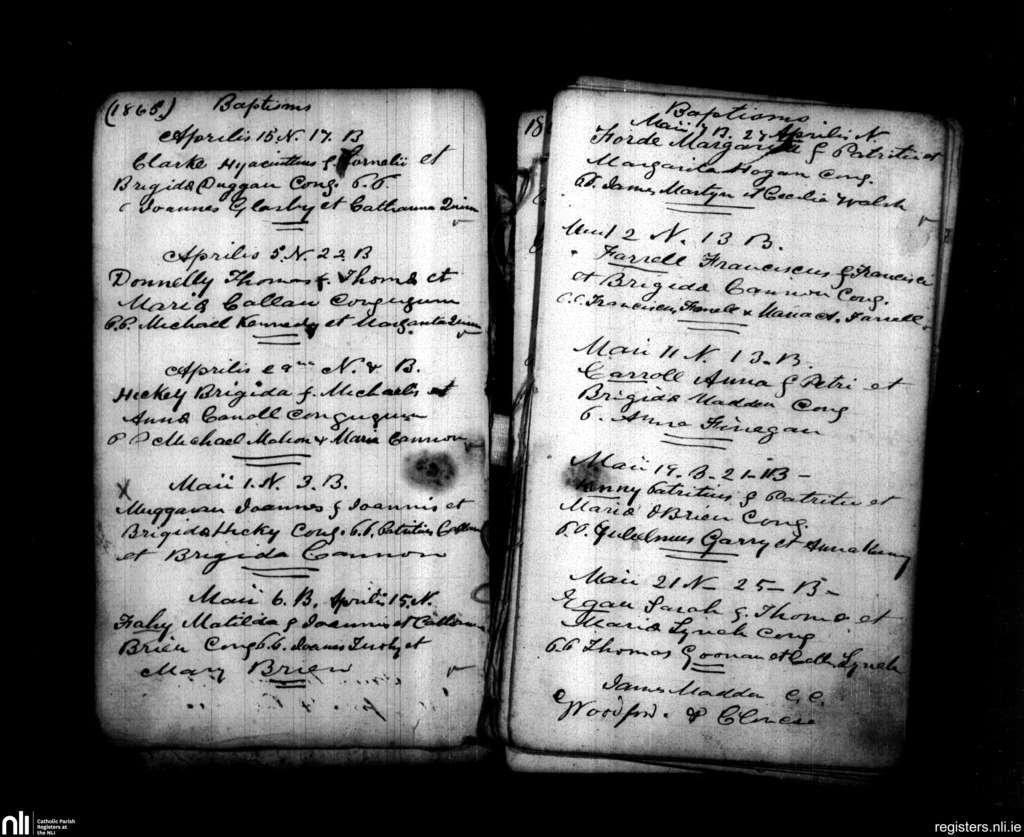 (1865.) Baptisms
Aprilis 15 N. 17. B
Clarke Hyacinthus f Cornelii et
Brigida Duggan Cong. P.P.
Joannes Glasby et Catharina Quinn
Aprilis 5. N. 22 B
Donnelly Thomas f. Thoma et
Maria Callan Congugum
P.P. Michael Kennedy et Margarita Quinn
Aprilis N. & B.
Hickey Brigida f. Michaelis et
Anna Congugum
P P Michael Mahon & Maria Cannon
X Maii 1. N. 3. B.
Joannes f Joannis et
Brigida Hicky Cong. P.P. Patritius
et Brigida Cannon
Maii 6. B. Aprilis 15 N.
Fahy Matilda f Joannis et
Brien Cong P.P. Joannes et
Mary Brien
18
Baptisms
Maii 7 B. 27 Aprilis N
Forde Margarita f Patritii et
Margarita Hogan Cong.
P.P. James Martyn et Cecilia Walsh
2 N. 13 B.
Farrell Franciscus f Francisci
et Brigida Cannon Cong.
P.P. Franciscus Farrell & Maria A. Farrell
Maii 11 N. 13-B.
Carroll Anna f Petri et
Brigida Madden Cong
P. Anna Finegan
Maii 19. B. 21-B-
Kenny Patritius f Patritii et
Maria O Brien Cong.
P.P. Gulielmus Garry et Anna Kenny
Maii 21 N- 25- B-
Egan Sarah f. Thoma et
Maria Lynch Cong
P.P Thomas Goonan et Cath. Lynch
James Madden C.C.
Woodford. &
nli Catholic Parish
Registers at
the NLI
registers.nli.ie